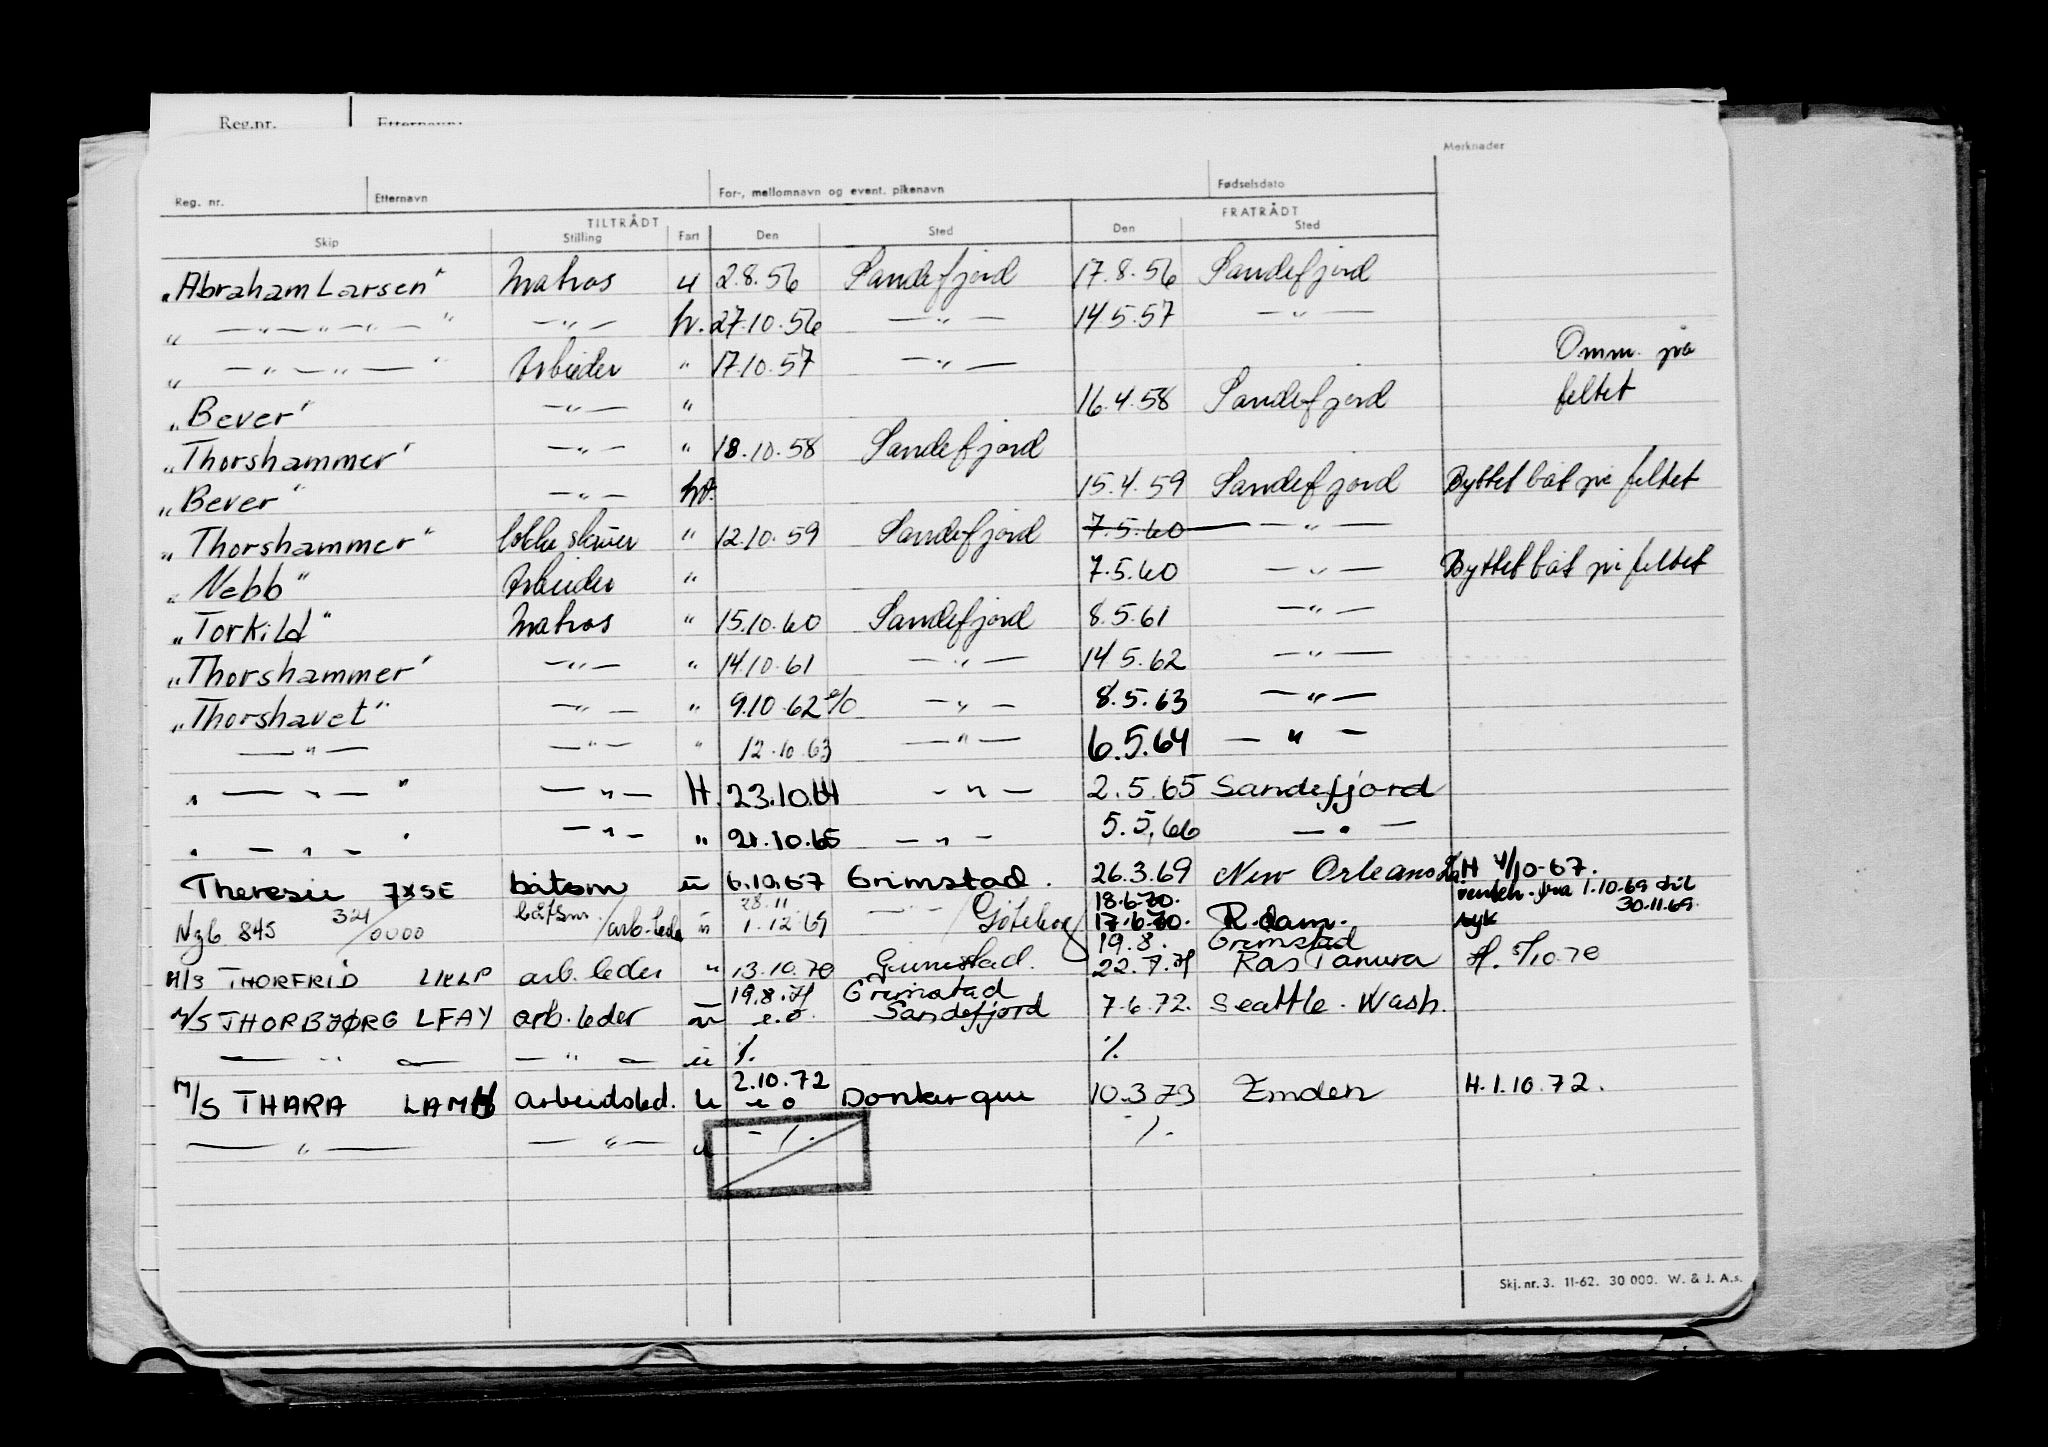 Reg.nr. Etternavn:
Merknader
Reg. nr. Etternavn For-, mellomnavn og event. pikenavn Fødselsdato
TILTRÅDT FRATRÅDT
Skip Stilling Fart Den Sted Den Sted
„Abraham Larsen" Matros u 2.8.56 Sandefjord 17.8.56 Sandefjord
„ — „ — „ — „ — " — „ — hv. 27.10.56 — „ — 14.5.57 — „ —
„ — „ — „ — " Arbeider " 17.10.57 — „ — Omm. på
„Bever" — „ — " 16.4.58 Sandefjord feltet
„Thorshammer" — „ — " 18.10.58 Sandefjord
„Bever" — „ — hv. 15.4.59 Sandefjord Byttet båt på feltet
„Thorshammer" " 12.10.59 Sandefjord 7.5.60 — „ —
„Nebb" Arbeider " 7.5.60 — „ — Byttet båt på feltet
„Torkild" Matros " 15.10.60 Sandefjord 8.5.61 — „ —
„Thorshammer" — „ — " 14.10.61 — „ — 14.5.62 — „ —
„Thorshavet" — „ — " 9.10.62 — „ — 8.5.63 — „ —
— „ — — „ — " 12.10.63 — „ — 6.5.64 — „ —
„ — „ — " — „ — H. 23.10.64 — „ — 2.5.65 Sandefjord
„ — „ — " — „ — " 21.10.65 — „ — 5.5.66 — „ —
Theresie JXSE båtsm ū 6.10.67 Grimstad. 26.3.69 New Orleans La. H 4/10-67.
28.11 18.6.70. 1.10.69 til
Ngb 845 324/0000 båtsm./arb.leder ū 1.12.69 — „ — / Göteborg 17.6.70. R.dam. syk 30.11.69.
19.8. Grimstad
M/S THORFRID LIELP arb. leder " 13.10.70 Grimstad. 22.7.71 Ras Tanura H. 5/10.70
19.8.71 Grimstad
M/S THORBJØRG LFAY arb. leder ū e.o. Sandefjord 7.6.72. Seattle. Wash.
— „ — — „ — ū ٪. ٪.
2.10.72
M/S THARA LAMH arbeidsled. u e o Donkerque 10.3.73 Emden H. 1.10.72.
— „ — — „ — u - ٪. ٪.
Skj. nr. 3. 11-62. 30 000. W. & J. A.s.